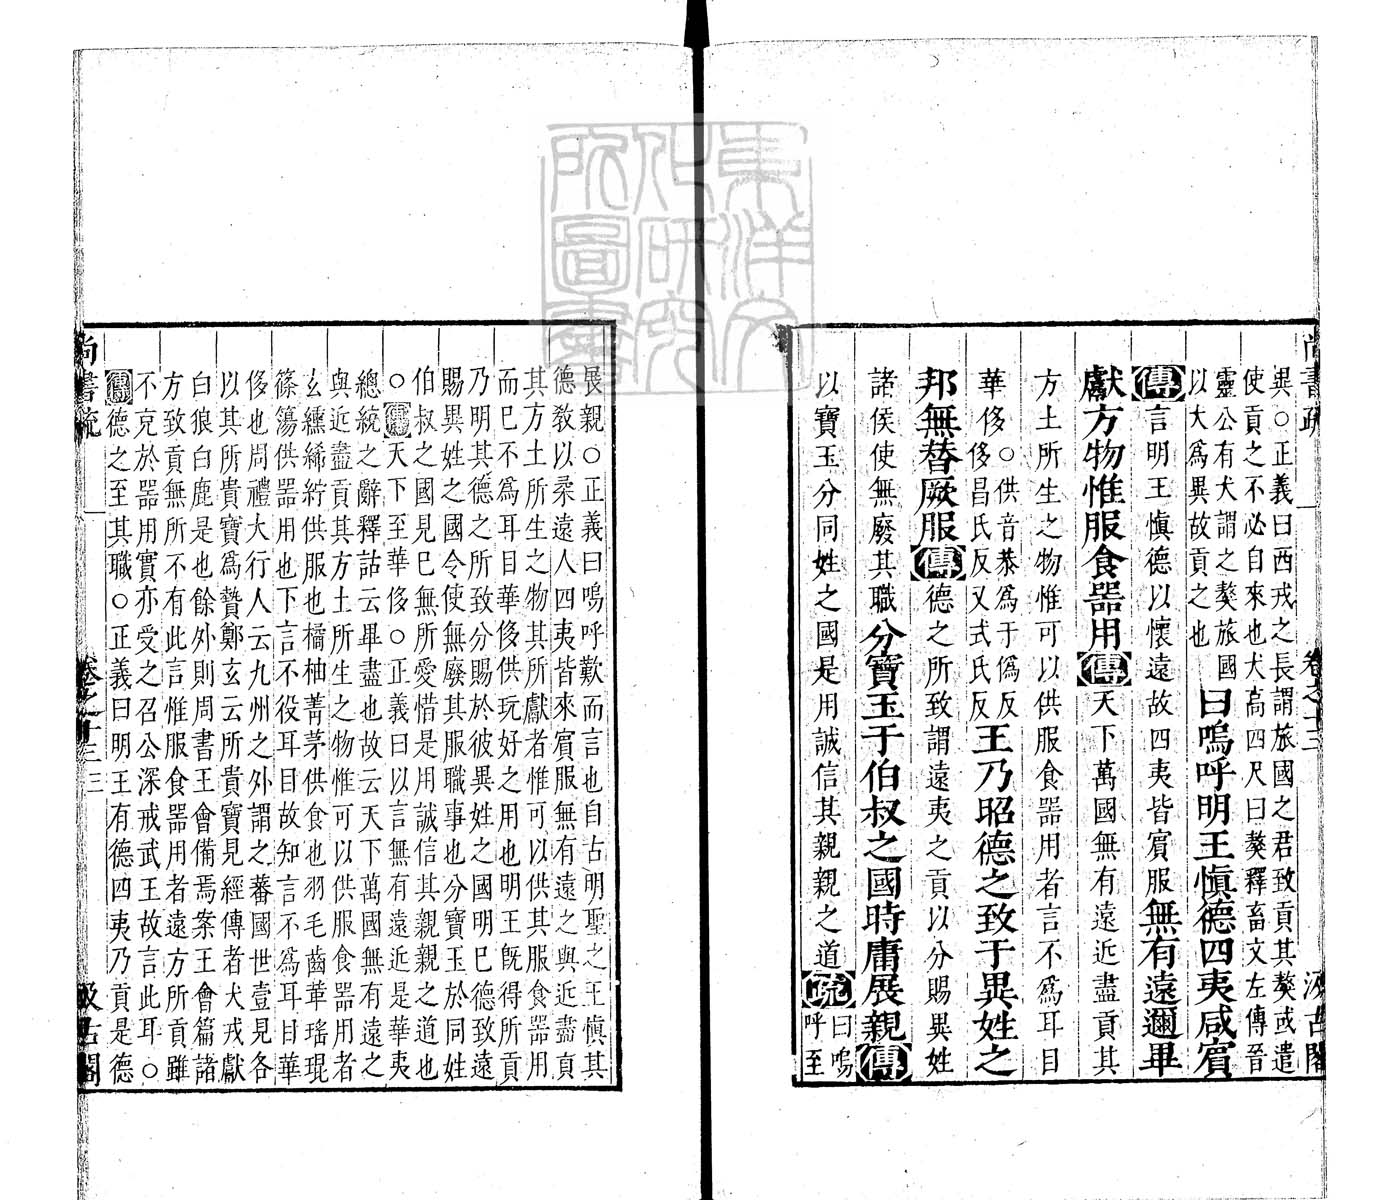 異○正義曰西戎之長謂旅國之君致貢其獒或遣
使貢之不必自來也犬高四尺曰獒釋畜文左傳晉
靈公有犬謂之獒旅國
以大爲異故貢之也
曰嗚呼明王愼德四夷咸賓
傳言明王愼德以懷遠故四夷皆賓服無有遠邇畢
獻方物惟服食器用傳天下萬國無有遠近盡貢其
方土所生之物惟可以供服食器用者言不爲耳目
華侈○供音恭爲于僞反
侈昌氏反又式氏反
王乃昭德之致于異姓之
邦無替厥服傳德之所致謂遠夷之貢以分賜異姓
諸侯使無廢其職分寶玉于伯叔之國時庸展親傳
以寶玉分同姓之國是用誠信其親親之道疏曰嗚
呼至
展親○正義曰嗚呼歎而言也自古明聖之王愼其
德教以柔遠人四夷皆來賓服無有遠之與近盡貢
其方土所生之物其所獻者惟可以供其服食器用
而已不爲耳目華侈供玩好之用也明王旣得所貢
乃明其德之所致分賜於彼異姓之國明已德致遠
賜異姓之國令使無廢其服職事也分寶玉於同姓
伯叔之國見已無所愛惜是用誠信其親親之道也
○傳天下至華侈○正義曰以言無有遠近是華夷
總統之辭釋詁云畢盡也故云天下萬國無有遠之
與近盡貢其方土所生之物惟可以供服食器用者
玄纁絺紵供服也橘柚菁茅供食也羽毛齒革瑤琨
篠簜供器用也下言不役耳目故知言不爲耳目華
侈也周禮大行人云九州之外謂之蕃國世壹見各
以其所貴寶爲贄鄭玄云所貴寶見經傳者犬戎獻
白狼白鹿是也餘外則周書王會備焉案王會篇諸
方致貢無所不有此言惟服食器用者遠方所貢雖
不克於器用實亦受之召公深戒武王故言此耳○
傳德之至其職○正義曰明王有德四夷乃貢是德
尚書疏
卷之十三
三
汲古閣
東洋文化研究所圖書